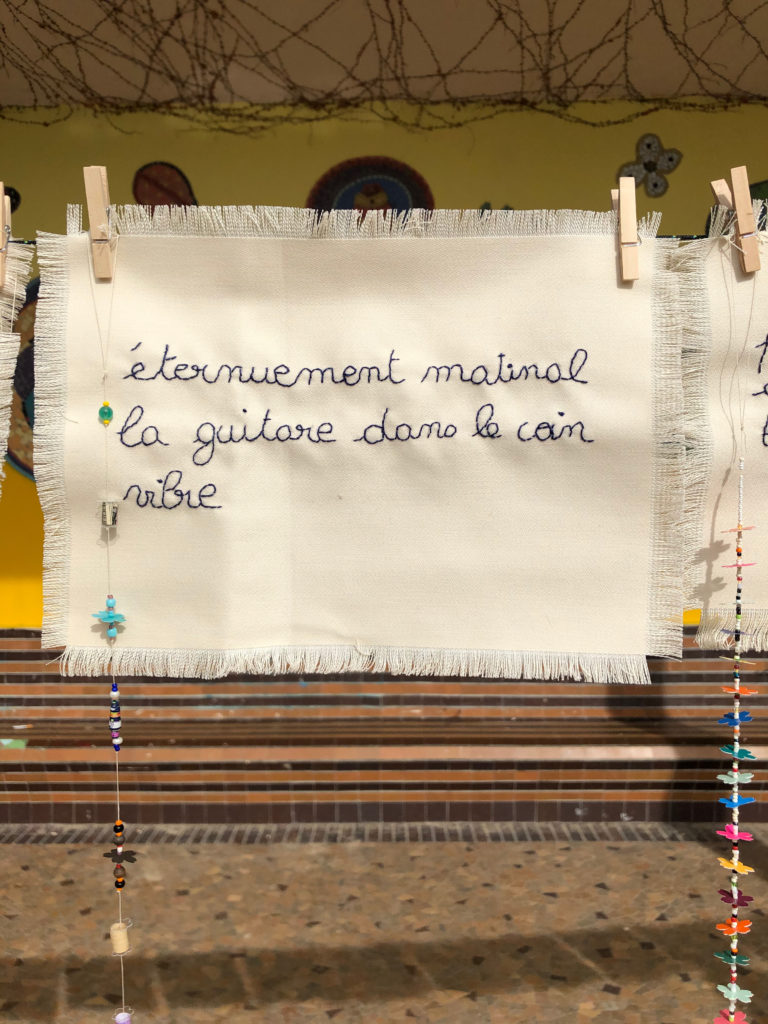 éternuement matinal
la guitare dans le coin
vibre